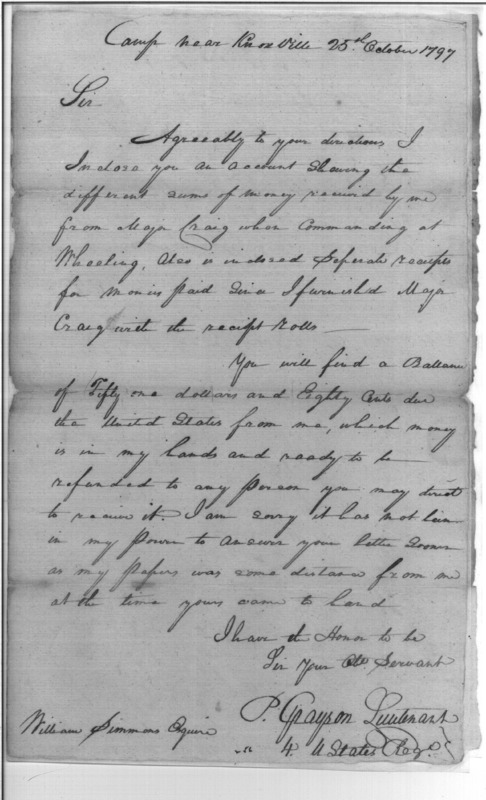 Camp near Knoxville 25th October 1797
Sir
Agreeably to your directions I
Inclose you an account Shewing the
different sums of money received by me
from Major Craig when Commanding at
Wheeling, Also is inclosed Seperate receipts
for monies Paid Since I furnished Major
Craig with the receipt Rolls —
You will find a Ballance
of Fifty one dollars and Eighty Cents due
the United States from me, which money
is in my hands and ready to be
refunded to any Person you may direct
to receive it. I am sorry it has not been
in my Power to answer your letter Sooner
as my Papers was some distance from me
at the time yours came to hand
I have the Honor to be
Sir Your Obt Servant
P. Grayson Lieutenant
William Simmons Esquire
4. U States Regt.